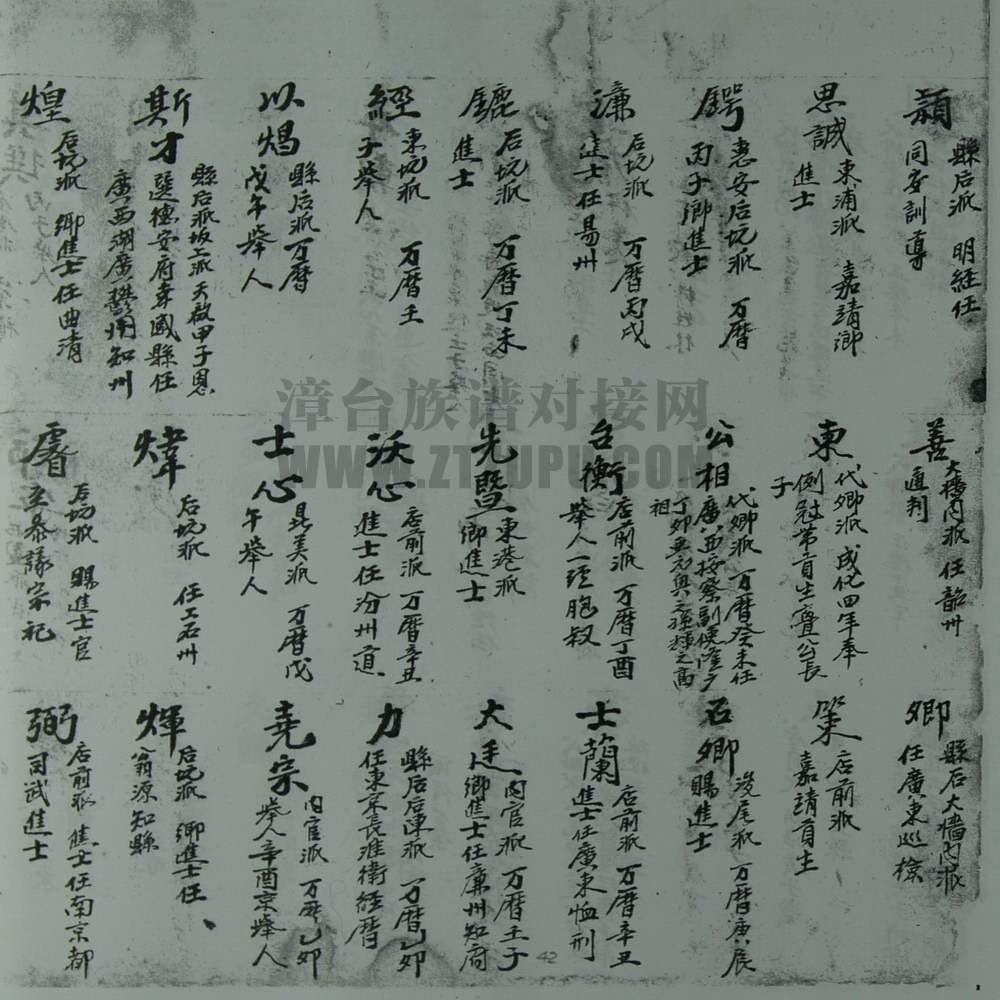 穎 縣后派 明經任
同安訓導
思誠 東浦派 嘉靖鄉
進士
鍔 惠安后坑派 万曆
丙子鄉進士
濂 后坑派 万曆丙戌
進士任易州
鑣 后坑派 万曆丁未
進士
經 東坑派 万曆壬
子舉人
以焬 縣后派 万曆
戊午舉人
斯才 縣后派坂上派天啟甲子恩
選德安府孝感縣任
廣西湖廣鬱州知州
煌 后坑派 鄉進士任曲清
善 大墻內派 任韶州
通判
東 代鄉派 成化四年奉
例冠帶貢生亹公長
子
公相 代鄉派 万曆癸未任
廣西按察副使
祖
台衡 店前派 万曆丁酉
舉人一頭胞叔
先暨 東港派
鄉進士
沃心 店前派 万曆辛丑
進士任汾州道
士心 昆美派 万曆戊
午舉人
煒 后坑派 任工名州
后坑派 賜進士官
至泰議宗祀
卿 縣后大墻內派
任廣東巡檢
策 店前派
嘉靖貢生
石卿 浚尾派 万曆庚辰
賜進士
士蘭 店前派 万曆辛丑
進士任廣東恤刑
大廷 內官派 万曆壬子
鄉進士任廉州知府
力 縣后后陳派 万曆乙卯
任東京長淮衛經曆
堯宗 內官派 万曆乙卯
舉人辛酉京舉人
煇 后坑派 鄉進士任
翁源知縣
弼 店前派 進士任南京都
司武進士
漳台族谱对接网
WWW.ZTZUPU.COM
42